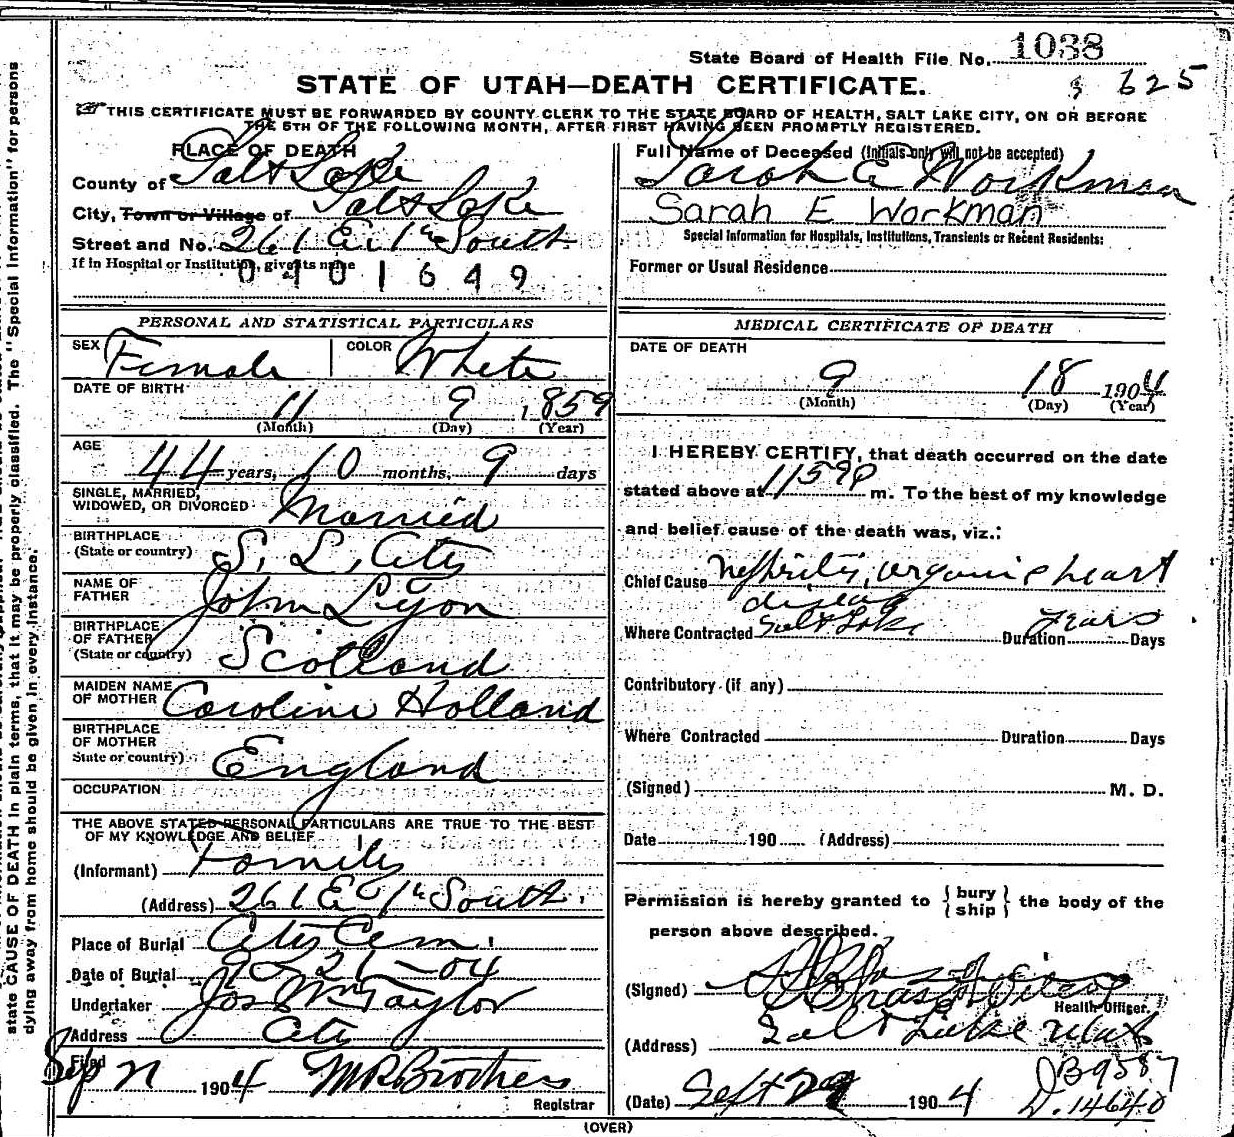 State Board of Health File No. 1038
STATE OF UTAH—DEATH CERTIFICATE.
625
THIS CERTIFICATE MUST BE FORWARDED BY COUNTY CLERK TO THE STATE BOARD OF HEALTH, SALT LAKE CITY, ON OR BEFORE
THE 5TH OF THE FOLLOWING MONTH, AFTER FIRST HAVING BEEN PROMPTLY REGISTERED.
PLACE OF DEATH
County of Salt Lake
City, Town or Village of Salt Lake
Street and No. 261 E. 1st South
If in Hospital or Institution, give its name
0401649
Full Name of Deceased (Initials only will not be accepted)
Sarah E Workman
Sarah E Workman
Special Information for Hospitals, Institutions, Transients or Recent Residents:
Former or Usual Residence
PERSONAL AND STATISTICAL PARTICULARS
SEX Female COLOR White
DATE OF BIRTH
11 9 1859
(Month) (Day) (Year)
AGE
44 years, 10 months, 9 days
SINGLE, MARRIED,
WIDOWED, OR DIVORCED Married
BIRTHPLACE
(State or country) S. L. City
NAME OF
FATHER John Lyon
BIRTHPLACE
OF FATHER
(State or country) Scotland
MAIDEN NAME
OF MOTHER Caroline Holland
BIRTHPLACE
OF MOTHER
State or country) England
OCCUPATION
THE ABOVE STATED PERSONAL PARTICULARS ARE TRUE TO THE BEST
OF MY KNOWLEDGE AND BELIEF
(Informant) Family
(Address) 261 E 1st South.
Place of Burial City Cem.
Date of Burial 9-21-04
Undertaker Jos Wm Taylor
Address City
Filed Sep 1904 Brothers
Registrar
MEDICAL CERTIFICATE OF DEATH
DATE OF DEATH
9 18 1904
(Month) (Day) (Year)
I HEREBY CERTIFY, that death occurred on the date
stated above at 1159 P m. To the best of my knowledge
and belief cause of the death was, viz.:
Chief Cause Nephritis, organic heart
disease
Where Contracted Salt Lake Duration years Days
Contributory (if any)
Where Contracted Duration Days
(Signed) M. D.
Date 190 (Address)
Permission is hereby granted to {bury
ship} the body of the
person above described.
(Signed)
Health Officer.
(Address) Salt Lake Utah
(Date) Sept 1904
B9587
D. 14640
(OVER)
state CAUSE OF DEATH in plain terms, that it may be properly classified. The "Special Information" for persons
dying away from home should be given in every instance.